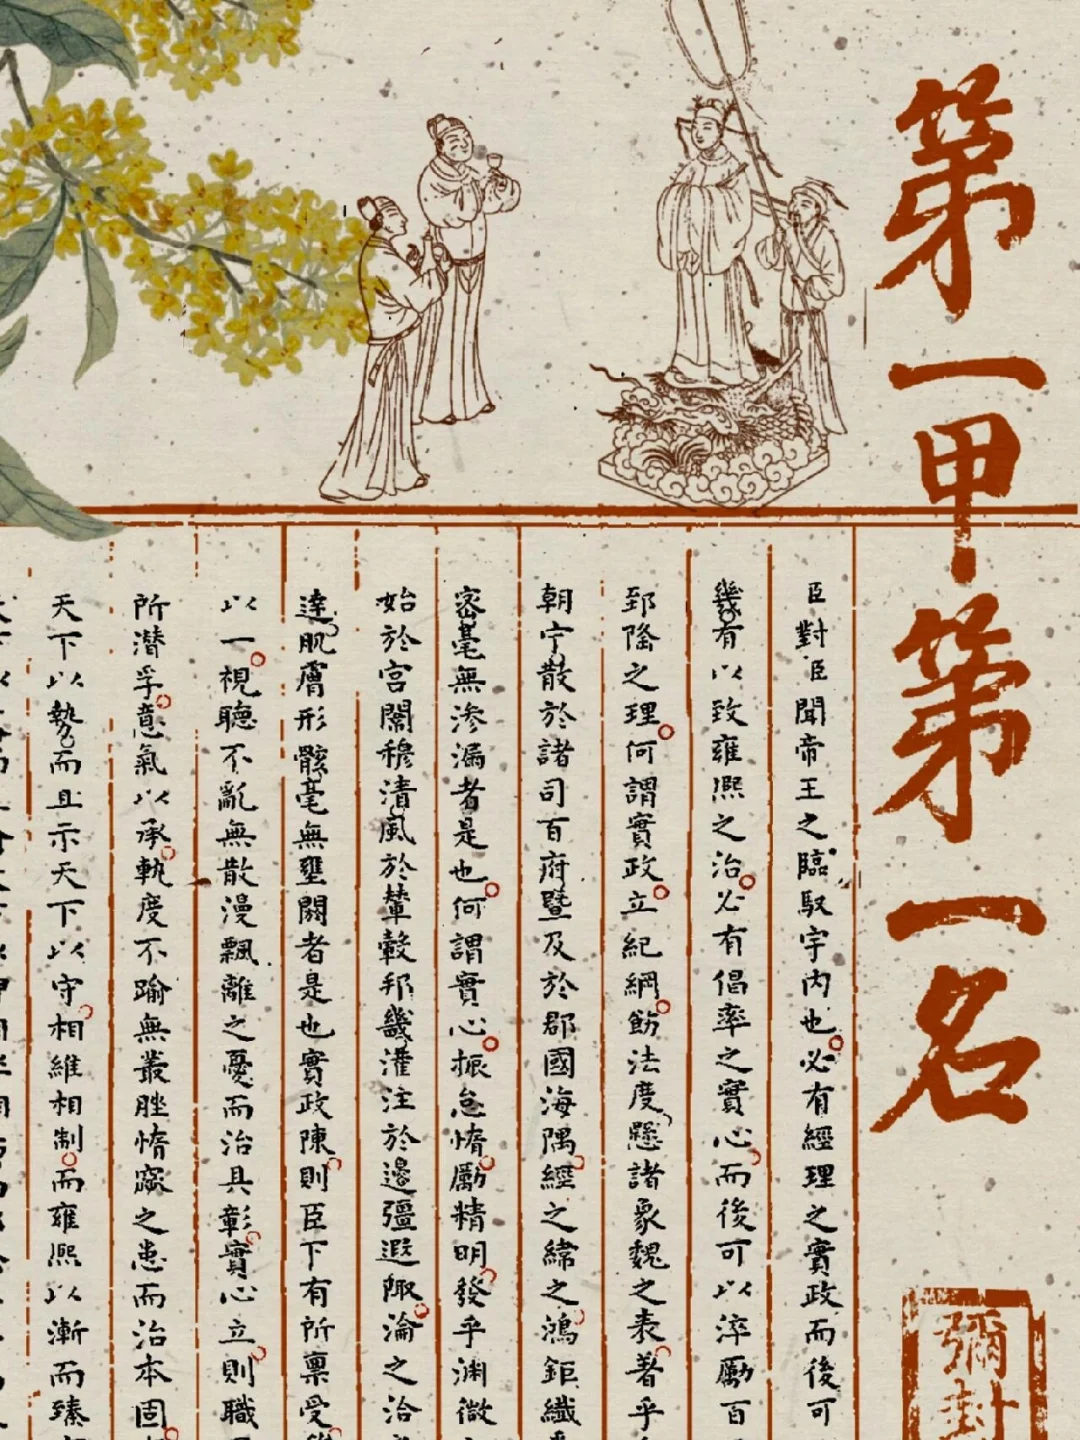 第一甲第一名
彌封
臣對臣聞帝王之臨馭宇內也必有經理之實政而後可
幾有以致雍熙之治必有倡率之實心而後可以淬勵百
郅隆之理何謂實政立紀綱飭法度懸諸象魏之表著乎
朝宁散於諸司百府暨及於郡國海隅經之緯之鴻鉅纖
密毫無滲漏者是也何謂實心振怠惰勵精明發乎淵微
始於宮闈穆清風於輦轂邦畿灌注於邊疆遐陬淪之洽
達肌膚形骸毫無壅閼者是也實政陳則臣下有所稟受
以一視聽不亂無散漫飄離之憂而治具彰實心立則職
所潛孚意氣以承執度不踰無叢脞惰窳之患而治本固
天下以勢而且示天下以守相維相制而雍熙以漸而臻